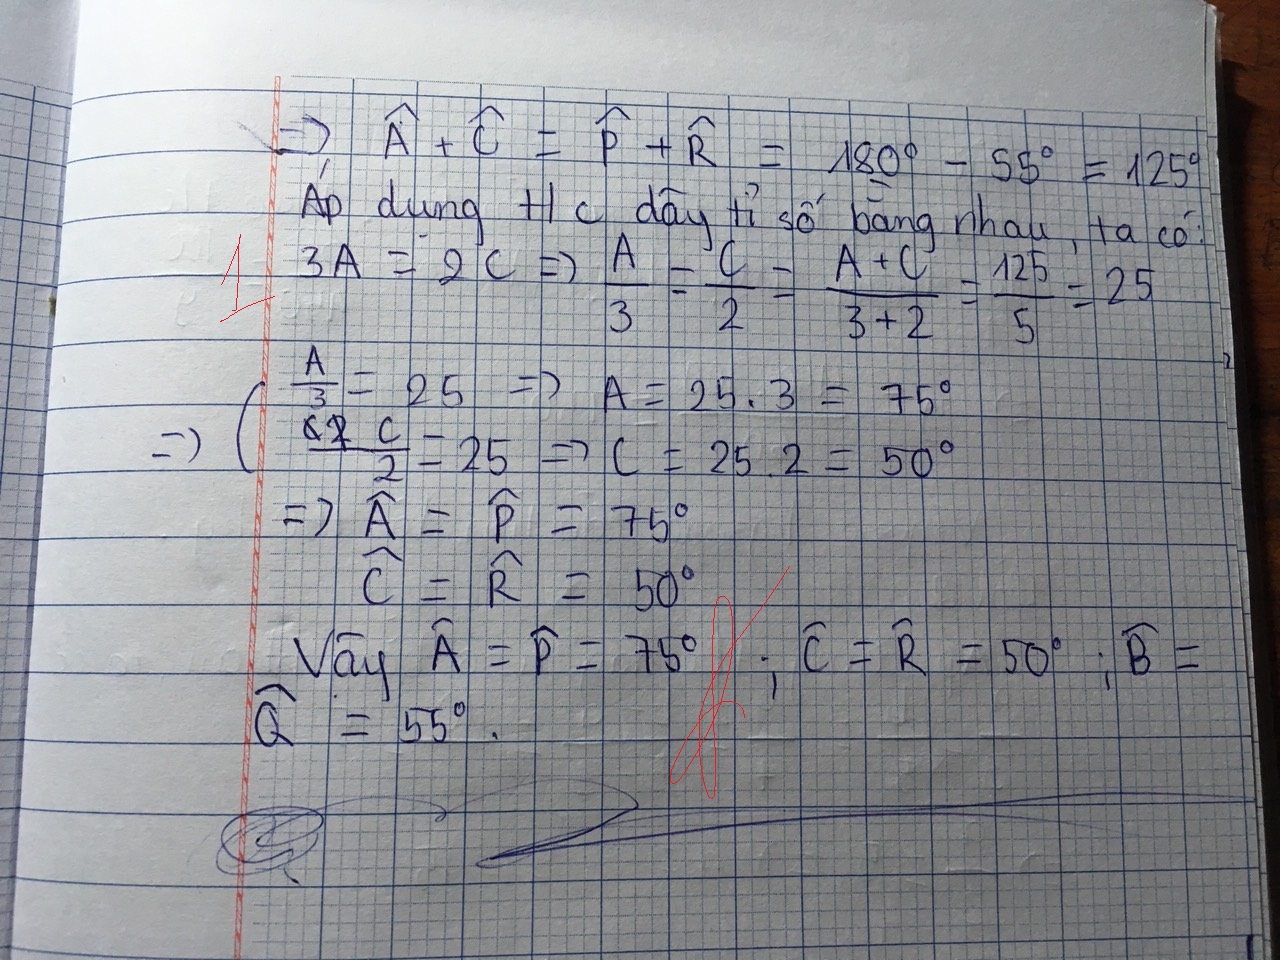 => Â + Ĉ = P̂ + R̂ = 180° - 55° = 125°
Áp dụng t/c dãy tỉ số bằng nhau, ta có:
1
3A = 2C => A/3 = C/2 = (A + C)/(3 + 2) = 125/5 = 25
A/3 = 25 => A = 25.3 = 75°
=> ( C/2 = 25 => C = 25.2 = 50°
=> Â = P̂ = 75°
Ĉ = R̂ = 50°
Vậy Â = P̂ = 75° ; Ĉ = R̂ = 50° ; B̂ =
Q̂ = 55°.